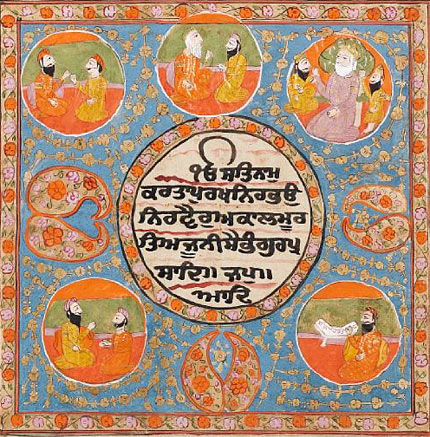 ੴ ਸਤਿਨਾਮੁ
ਕਰਤਾਪੁਰਖਨਿਰਭਉ
ਨਿਰਵੈਰਅਕਾਲਮੂਰ
ਤਿਅਜੂਨੀਸੈਭੰਗੁਰਪ੍ਰ
ਸਾਦਿ॥ ਜਪੁ॥
ਆਦਿ